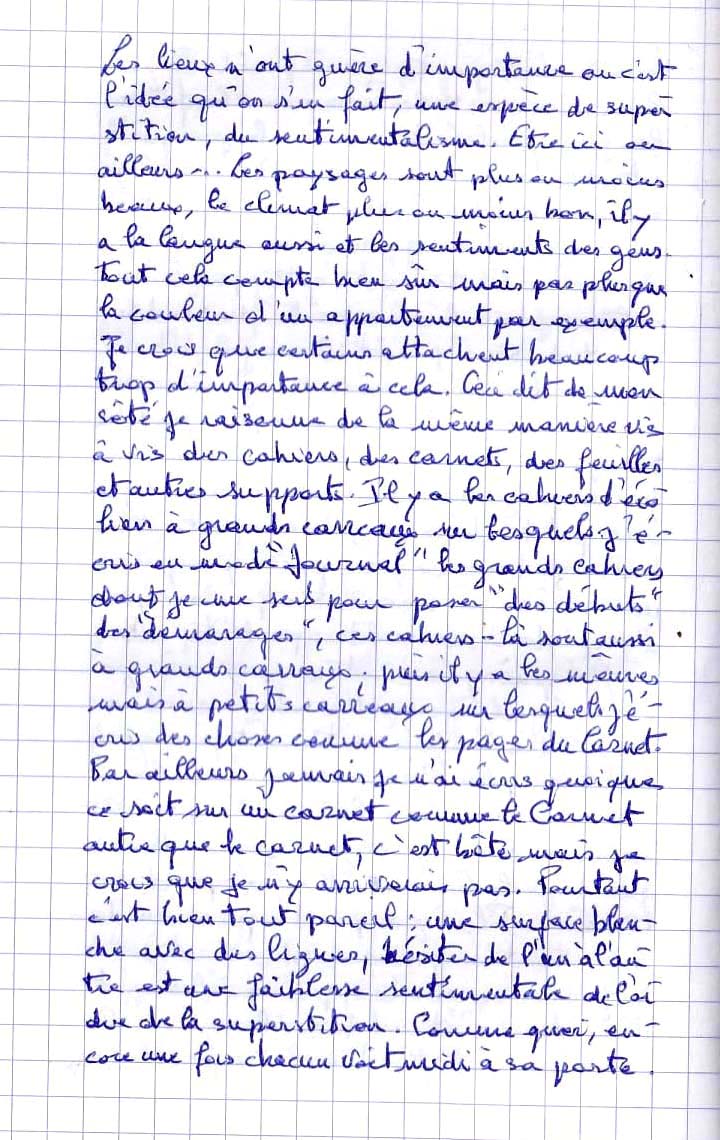 Les lieux n'ont guère d'importance ou c'est
l'idée qu'on s'en fait, une espèce de super
stition, du sentimentalisme. Etre ici ou
ailleurs... Les paysages sont plus ou moins
beaux, le climat plus ou moins bon, il y
a la langue aussi et les sentiments des gens.
Tout cela compte bien sûr mais pas plus que
la couleur d'un appartement par exemple.
Je crois que certains attachent beaucoup
trop d'importance à cela. Ceci dit de mon
côté je raisonne de la même manière vis
à vis des cahiers, des carnets, des feuilles
et autres supports. Il y a les cahiers d'éco
lier à grands carreaux sur lesquels j'é-
cris en mode "Journal" les grands cahiers
dont je me sers pour poser "des débuts"
des "démarages", ces cahiers-là sont aussi
à grands carreaux, puis il y a les mêmes
mais à petits carreaux sur lesquels j'é-
cris des choses comme les pages du Carnet.
Par ailleurs jamais je n'ai écris quoique
ce soit sur un carnet comme le Carnet
autre que le carnet, c'est bête mais je
crois que je n'y arriverais pas. Pourtant
c'est bien tout pareil : une surface blan-
che avec des lignes, hésiter de l'un à l'au
tre est une faiblesse sentimentale de l'or
dre de la superstition. Comme quoi, en-
core une fois chacun voit midi à sa porte.